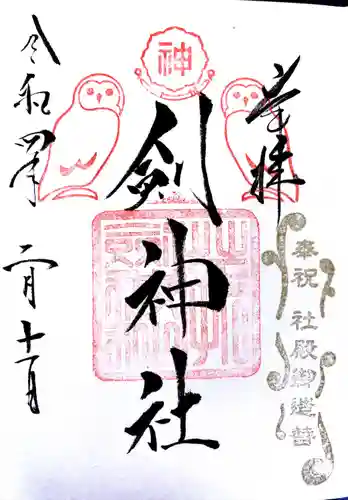 奉拝
奉祝 社殿御造替
神
劔神社
令和四年
二月十一日